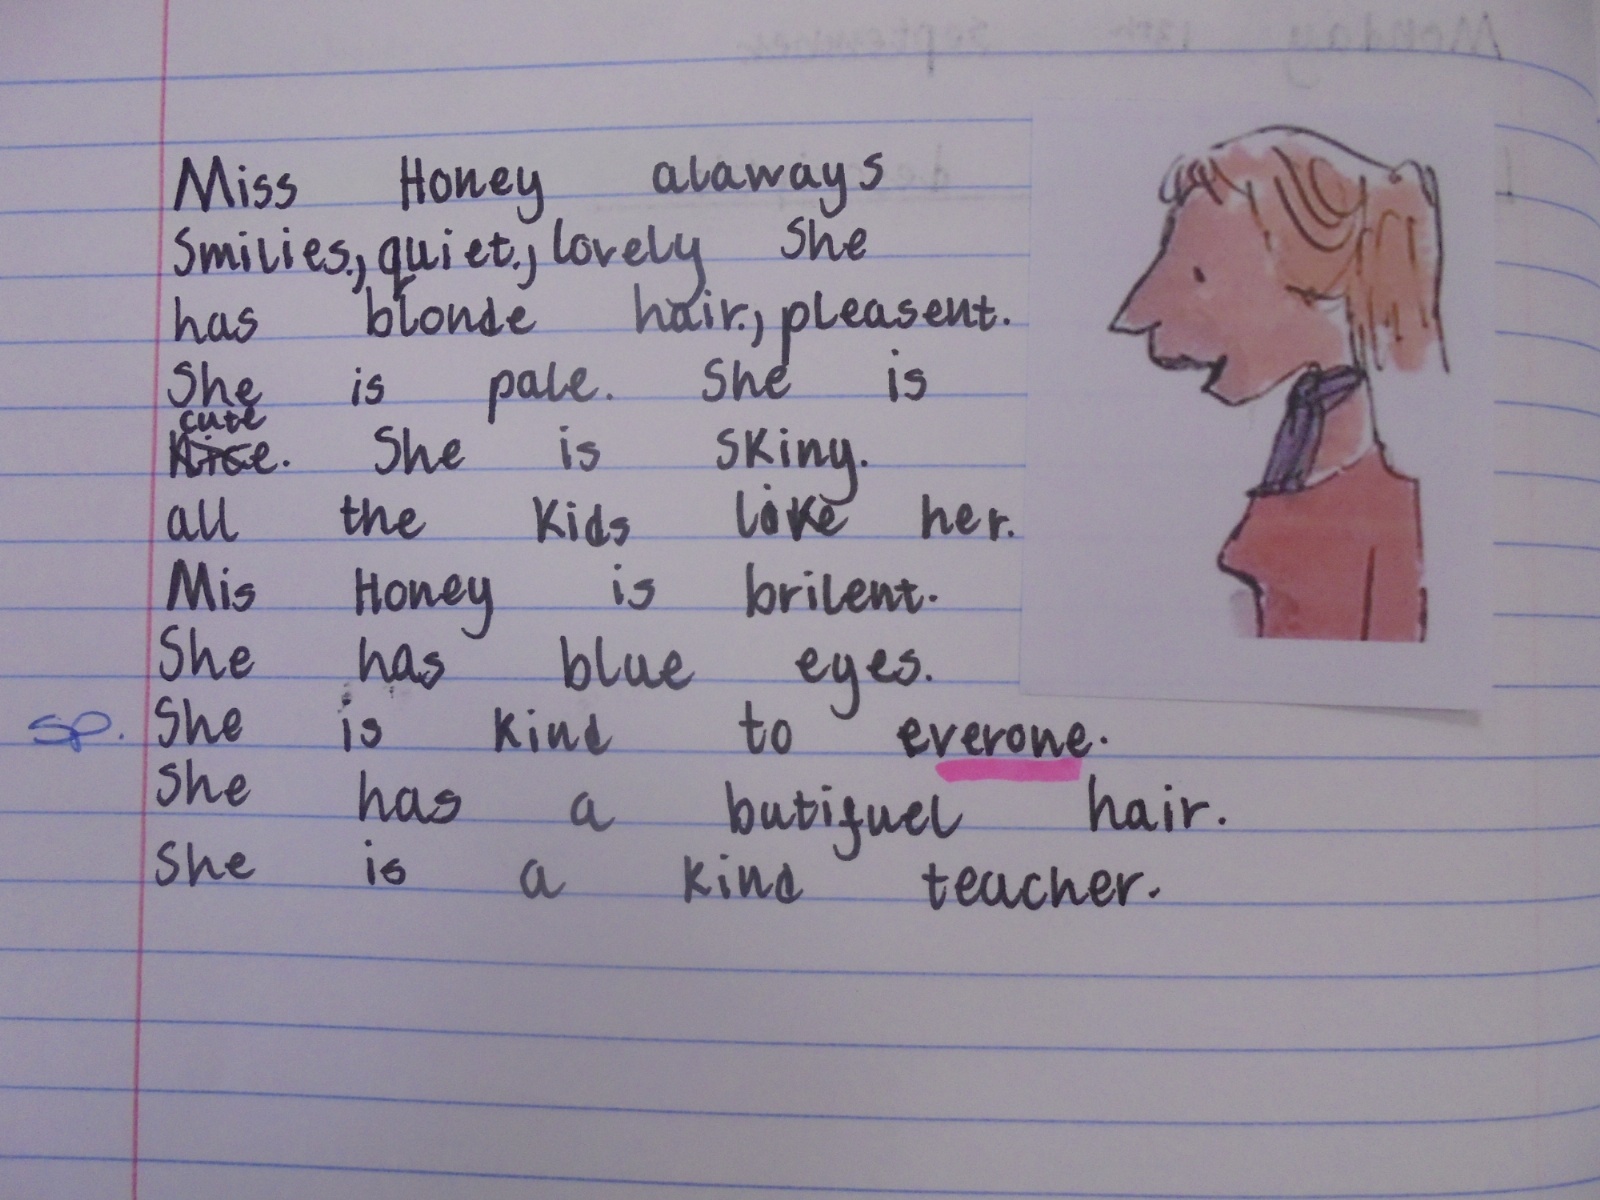 Monday 13th September
Miss Honey alaways
Smilies., quiet., lovely She
has blonde hair., pleasent.
She is pale. She is
cute
Nice. She is skiny.
all the kids like her.
Mis Honey is brilent.
She has blue eyes.
sp. She is kind to everone.
She has a butifuel hair.
She is a kind teacher.